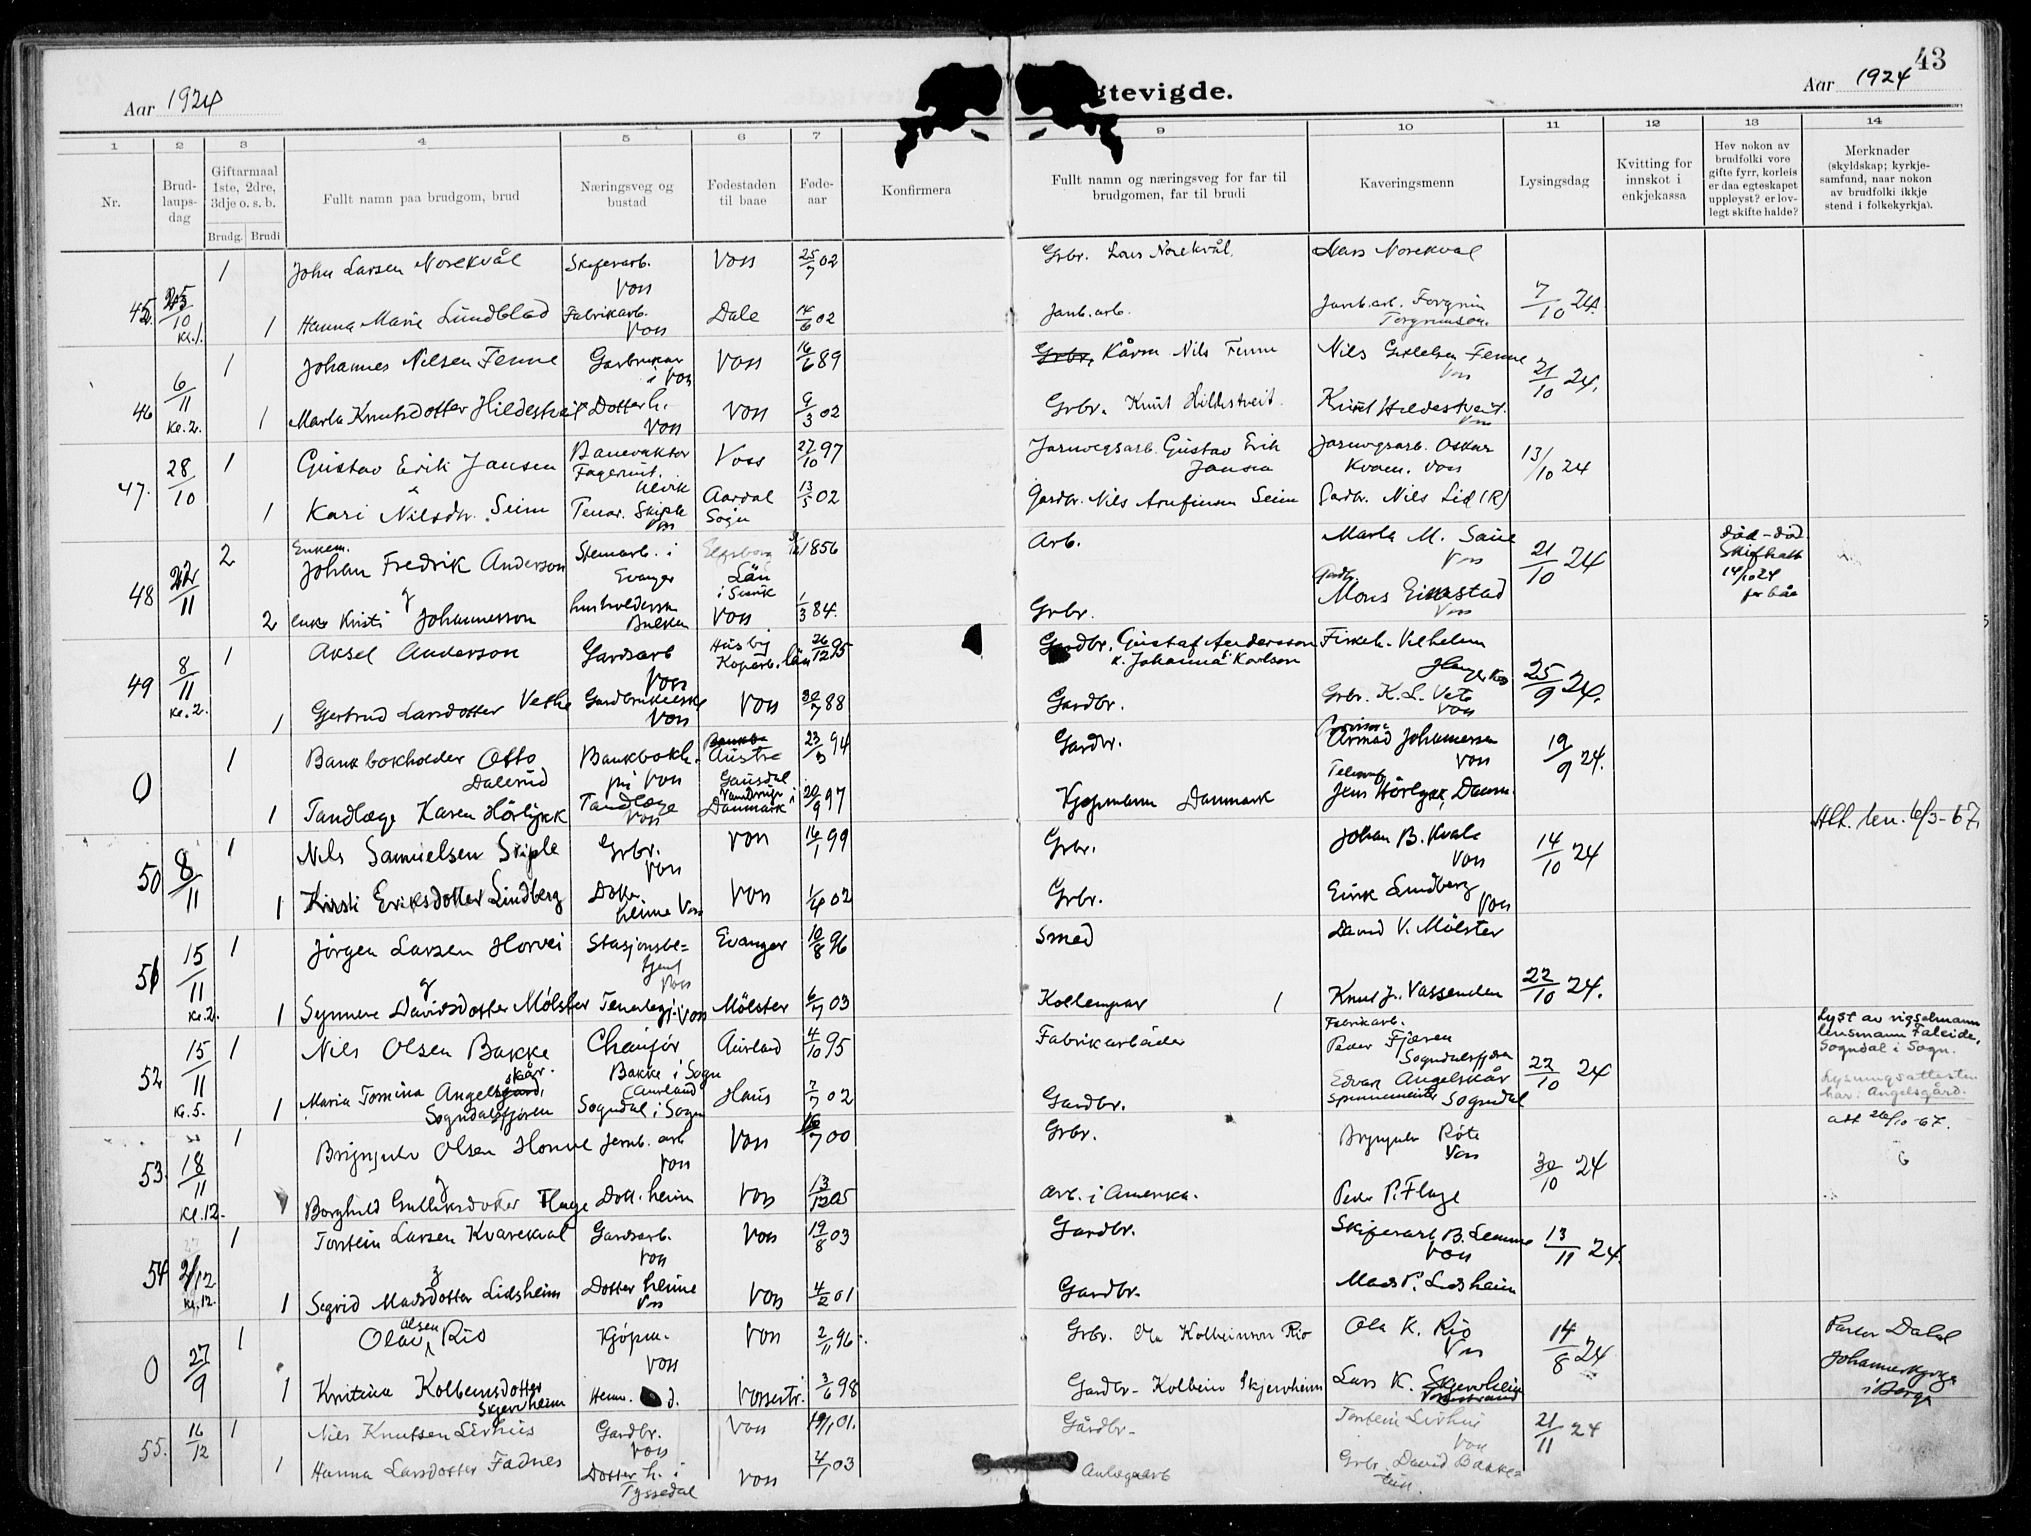 Aar 1924
Egtevigde.
Aar 1924
43
1 2 3 4 5 6 7 9 10 11 12 13 14
Nr.
Brudlaupsdag
Giftarmaal 1ste, 2dre, 3dje o. s. b.
Brudg. Brudi
Fullt namn paa brudgom, brud
Næringsveg og bustad
Fødestaden til baae
Føde-aar
Konfirmera
Fullt namn og næringsveg for far til brudgomen, far til brudi
Kaveringsmenn
Lysingsdag
Kvitting for innskot i enkjekassa
Hev nokon av brudfolki vore gifte fyrr, korleis er daa egteskapet uppløyst? er lovlegt skifte halde?
Merknader (skyldskap; kyrkjesamfund, naar nokon av brudfolki ikkje stend i folkekyrkja).
1 John Larsen Norekvål Skiferarb. Voss Voss 25/7 02 Grbr. Lars Norekvål. Lars Norekval
45 25/10 Kl. 1. 1 Hanna Marie Lundblad Fabrikarb. Voss Dale 14/6 02 Janb.arb. Janb.arb. Torgrimson. 7/10 24.
1 Johannes Nilsen Fenne Garbrukar i Voss Voss 16/6 89 Kårm Nils Fenne Nils Fenne Voss 21/10 24.
46 6/11 Kl. 2. 1 Marta Knutsdotter Hildestveit Dotter h. Voss Voss 9/3 02 Grbr. Knut Hildestveit. Knut Hildestveit. Voss
47. 28/10 1 Gustav Erik Jansen Banevaktor Fagernut. Ulvik Voss 27/10 97 Jarnvegsarb. Gustav Erik Jansen Jarnvgsarb. Oskar Kvaen. Voss 13/10 24
1 Kari Nilsdtr. Seim Tenar. Skiple Voss Aardal Sogn 13/5 02 Gardbr. Nils Arnfinson Seim Gardbr. Nils Lid (R)
48 22/11 2 Enkem. Johan Fredrik Anderson Stenarb. i Evanger Elfsborg Län 1856 Arb. Marta M. Saue Voss 21/10 24 død - død Skifteatt 14/10 24 for båe
2 enke Kristi Johannesson husholderske Bulken Voss 1/3 84. Grbr. Gardbr. Mons Eimstad Voss
49 8/11 Kl. 2. 1 Aksel Anderson Gardsarb Voss Husby Koparb. län 26/12 95 Gardbr. Gustaf Andersson k. Johanna Karlson Vilhelm 25/9 24.
1 Gjertrud Larsdotter Vethe Gardbrukerske Voss Voss 7 88 Gardbr. Grbr. K. L. Vete Voss
0 1 Bankbokholder Otto Dalerud Bankbokh. på Voss Austre Gausdal 23/3 94 Gardbr. Johannessen Voss 19/9 24.
1 Tandlæge Karen Hörlykk Tandlæge Voss Vamdrup i Danmark 20/9 97 Kjøpmann Danmark Jens Hörlykk, Danm.
1 Nils Samuelsen Skiple Grbr. Voss Voss 16/1 99 Grbr. Johan B. Kvale Voss 14/10 24 Att. len. 6/3-67.
50 8/11 1 Kirsti Eriksdotter Lindberg Dotter heime Voss Voss 1/4 02 Grbr. Eirik Lindberg Voss
51 15/11 Kl. 2. 1 Jörgen Larsen Horvei Stasjonsbetjent Voss Evanger 10/8 96 Smed David V. Mölster 22/10 24.
og
1 Synneve Davidsdotter Mölster Voss Mölster 6/7 03 Knut J. Vassenden
52 15/11 Kl. 5. 1 Nils Olsen Bakke Chaufør Bakke i Sogn (Aurland) Aurland 4/10 95 Fabrikarbeider Fabrikarb. Peder Fjæren Sogndalsfjøren 22/10 24 Lyst av vigselmann lensmann Faleide, Sogndal i Sogn.
1 Maria Tomina Angelskår. Sogndalsfjøren Sogndal i Sogn Haus 7/7 02 Gardbr. Edvar Angelskår Spinnemeister Sogndal Lysningsattesten har: Angelsgård.
53. 18/11 Kl. 12. 1 Brynjulv Olsen Horne Jernb. arb Voss Voss 7 00 Grbr. Brynjulv Röte Voss 30/10 24 att 26/10-67.
Borghild Gulliksdotter Flage Dott. heim Voss 13/12 05 Arb. i Amerika. Peder P. Flage
54 2/12 Kl. 12. 1 Torstein Larsen Kvarekval Gardsarb. Voss Voss 19/8 03 Gardbr. Skiferarb B. Lemme Voss 13/11 24.
1 Sigrid Madsdotter Lidsheim Dotter heime Voss Voss 4/2 01 Gardbr. Mads P. Lidsheim
0 27/9 1 Olav Olsen Rio Kjöpm. Voss Voss 2/11 96. Grbr. Ola Kolbeinson Rio Ola K. Rio Voss 14/8 24 Pastor Dahl Johanneskyrkja i Bergen
1 Kristina Kolbeinsdotter Skjervheim Heim. Vossestr. 3/6 98 Gardbr. Kolbein Skjervheim Lars K. Skjervheim Vossestrand
55. 16/12 1 Nils Knutsen Lirhus Gardbr. Voss Voss 19/1 01. Gårdbr. Torstein Lirhus Voss 21/11 24
1 Hanna Larsdotter Fadnes Dotter h. i Tyssedal Voss 4/1 03 Anlegsarb Grbr. David Bakketun.